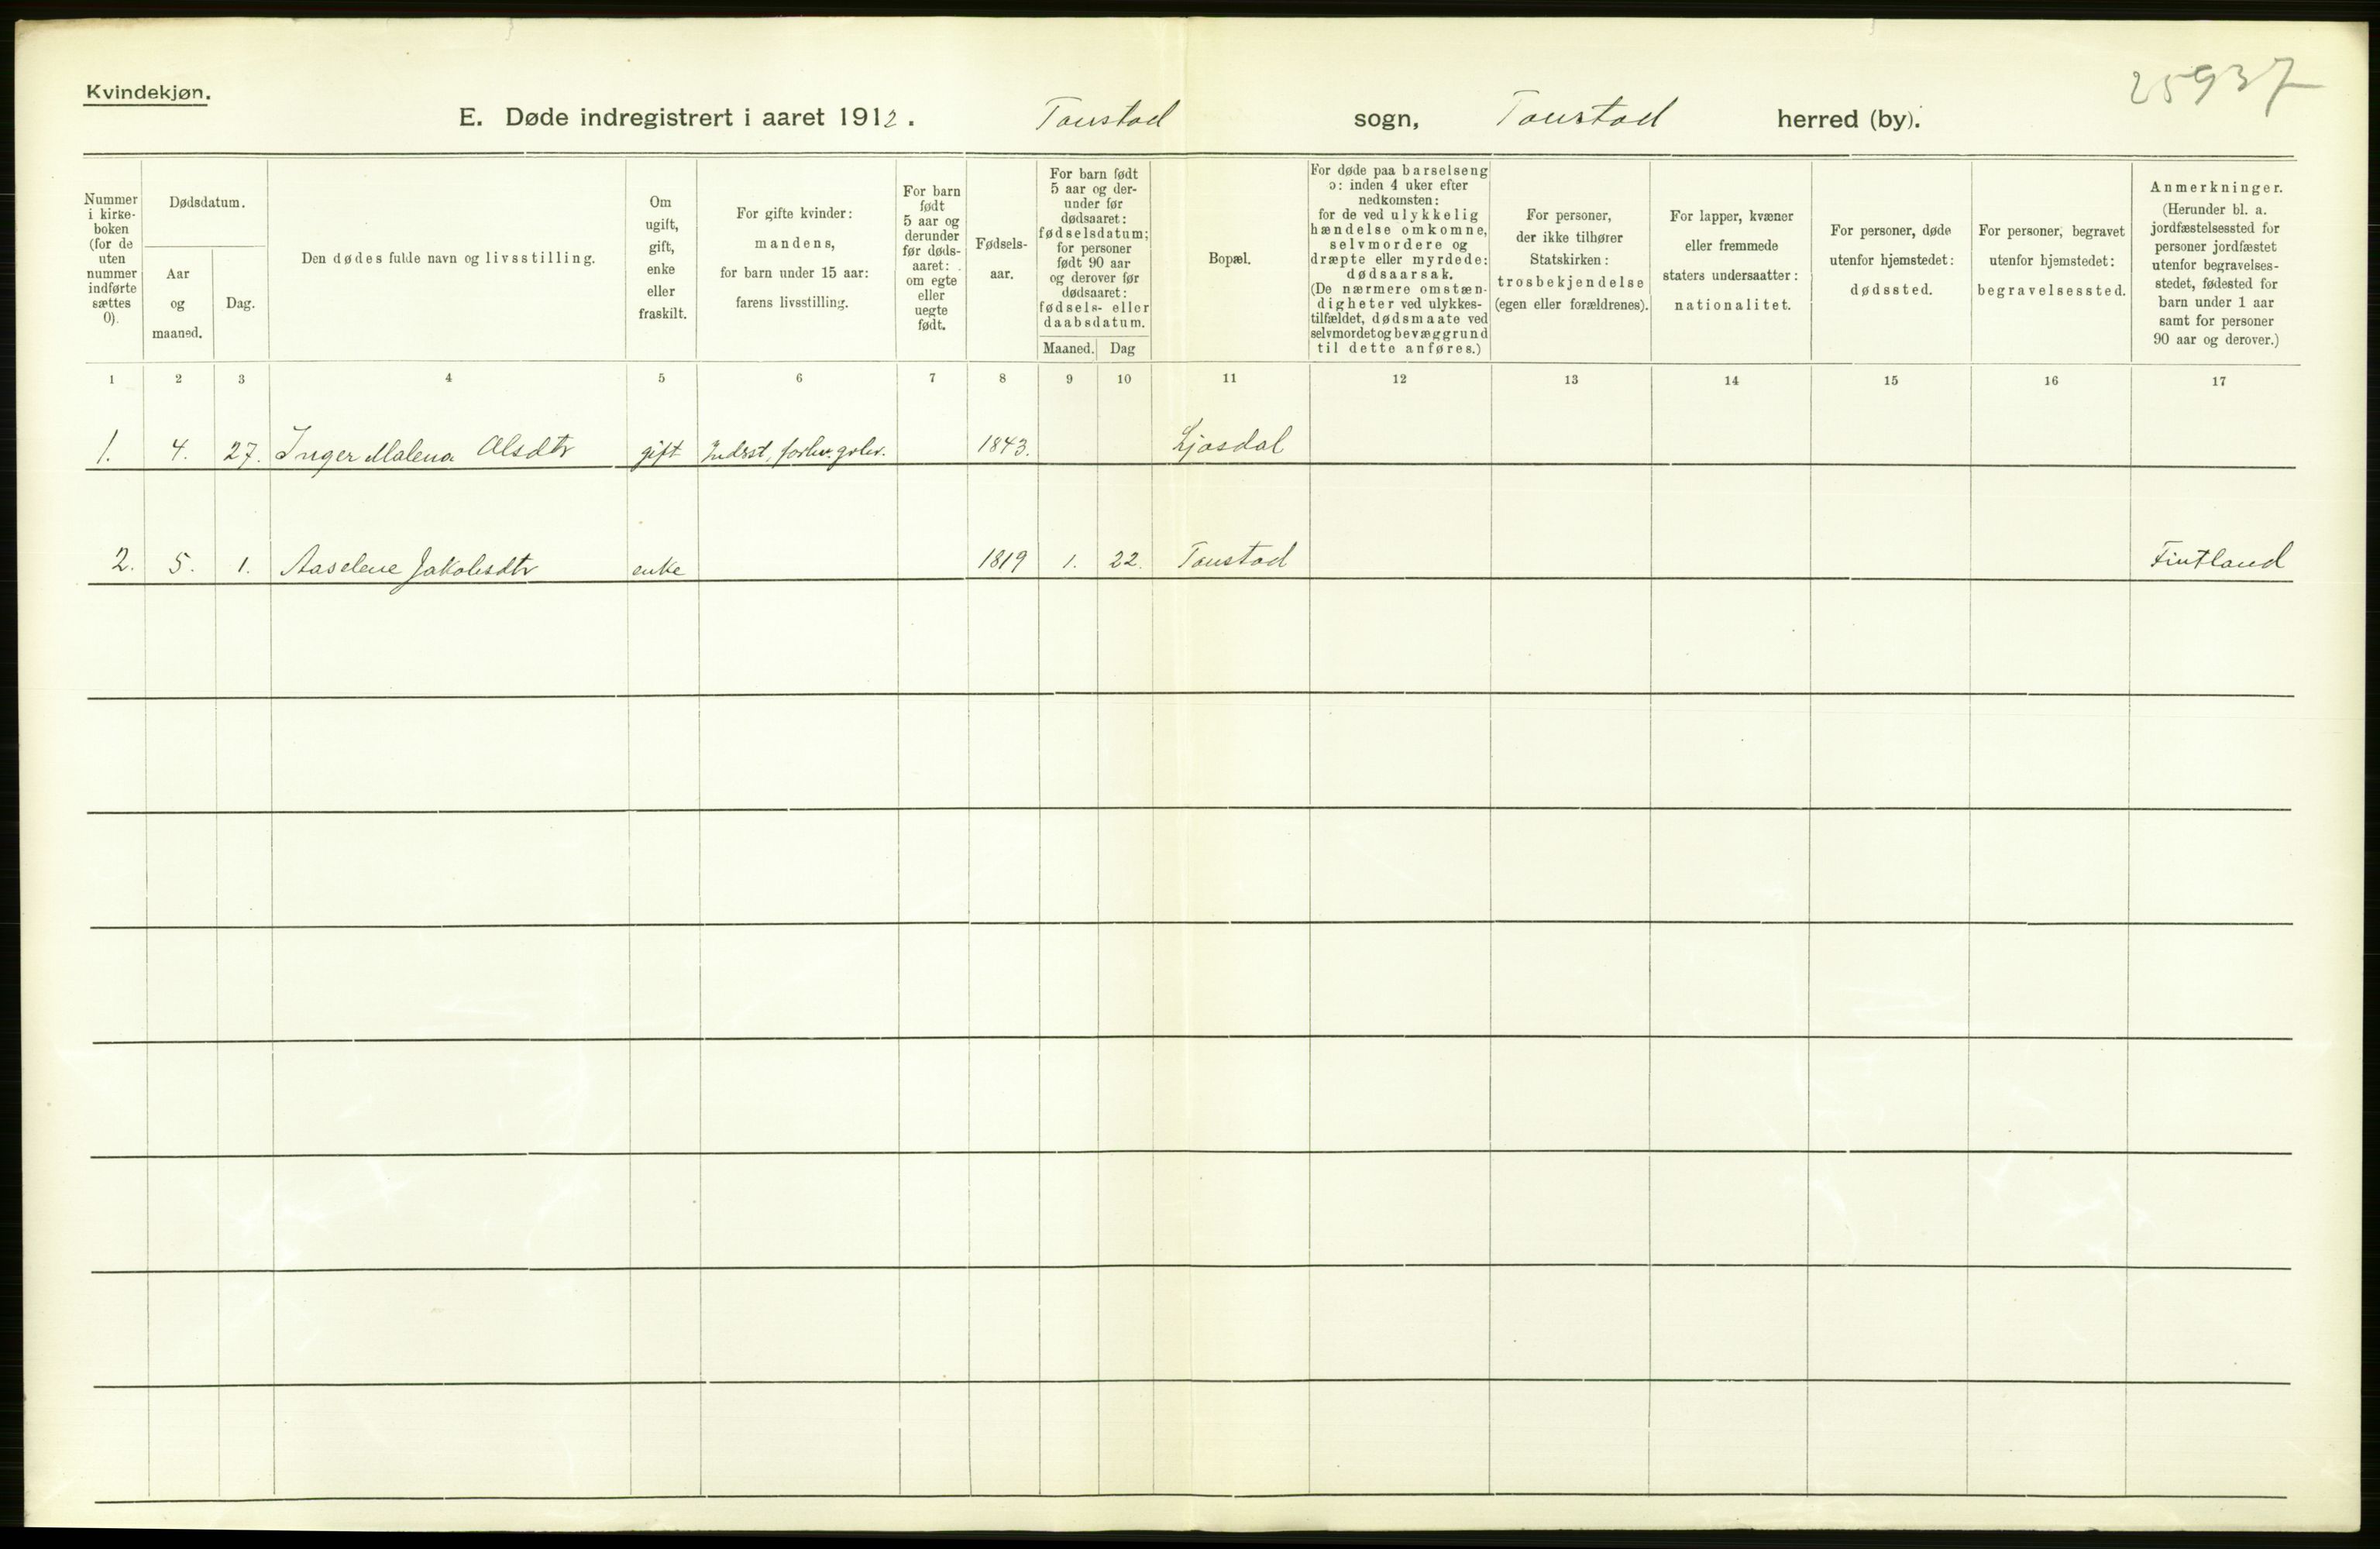 Kvindekjøn.
25937
E. Døde indregistrert i aaret 1912. Tonstad sogn, Tonstad herred (by).
Nummer
i kirke-
boken
(for de
uten
nummer
indførte
sættes
0).
Dødsdatum.
Aar
og
maaned.
Dag.
Den dødes fulde navn og livsstilling.
Om
ugift,
gift,
enke
eller
fraskilt.
For gifte kvinder:
mandens,
for barn under 15 aar:
farens livsstilling.
For barn
født
5 aar og
derunder
før døds-
aaret:
om egte
eller
uegte
født.
Fødsels-
aar.
For barn født
5 aar og der-
under før
dødsaaret:
fødselsdatum;
for personer
født 90 aar
og derover før
dødsaaret:
fødsels- eller
daabsdatum.
Maaned. Dag
Bopæl.
For døde paa barselseng
ɔ: inden 4 uker efter
nedkomsten:
for de ved ulykkelig
hændelse omkomne,
selvmordere og
dræpte eller myrdede:
dødsaarsak.
(De nærmere omstæn-
digheter ved ulykkes-
tilfældet, dødsmaate ved
selvmordet og bevæggrund
til dette anføres.)
For personer,
der ikke tilhører
Statskirken:
trosbekjendelse
(egen eller forældrenes).
For lapper, kvæner
eller fremmede
staters undersaatter:
nationalitet.
For personer, døde
utenfor hjemstedet:
dødssted.
For personer, begravet
utenfor hjemstedet:
begravelsessted.
Anmerkninger.
(Herunder bl. a.
jordfæstelsessted for
personer jordfæstet
utenfor begravelses-
stedet, fødested for
barn under 1 aar
samt for personer
90 aar og derover.)
1 2 3 4 5 6 7 8 9 10 11 12 13 14 15 16 17
1. 4. 27. Inger Malena Olsdtr gift Inderst, forhv. gbr. 1843. Ljosdal
2. 5. 1. Aaselene Jakobsdtr enke 1819 1. 22. Tonstad Fintland